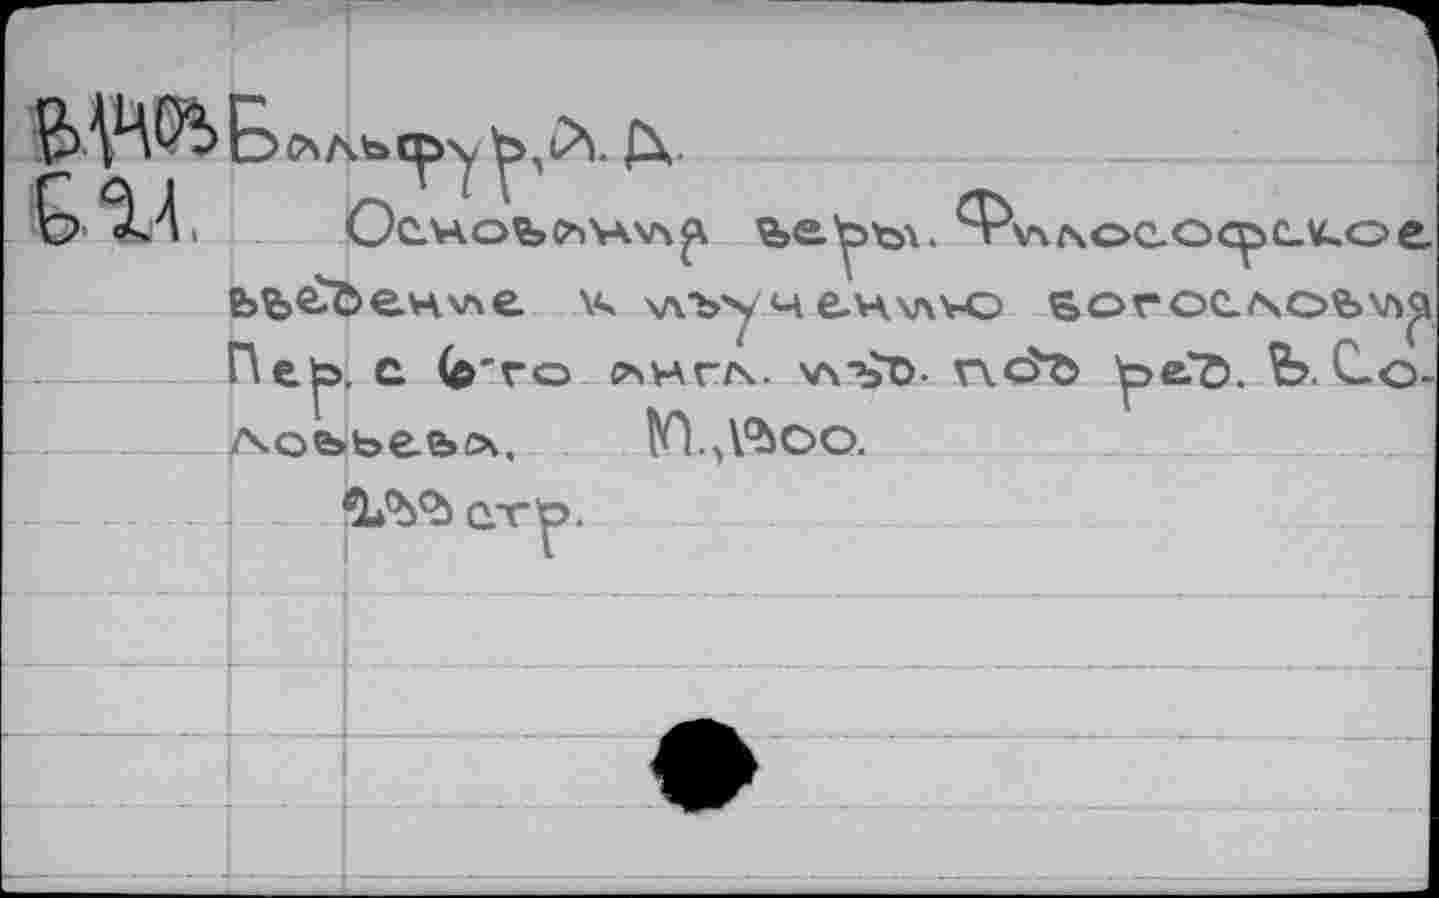 В1403 Бальфур, А. Д.
Б.21. Основания веры. Философское
введение к изучению богословия
Пер. с 6-го англ. изд. под ред. В. Со-
ловьева. М., 1900.
233 стр.